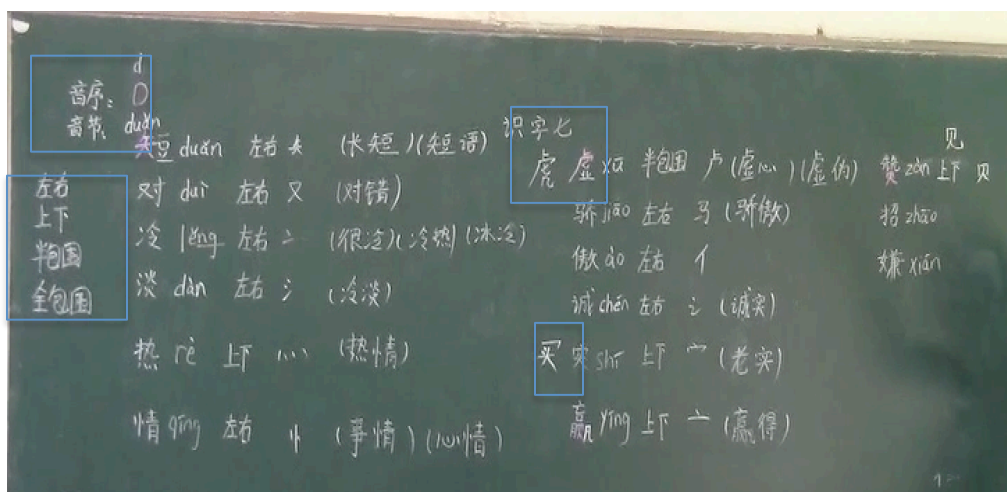 d
音序：D
音节：duǎn
左右
上下
半包围
全包围
短 duǎn 左右 矢 (长短)(短语)
对 duì 左右 又 (对错)
冷 lěng 左右 冫 (很冷)(冷热)(冰冷)
淡 dàn 左右 氵 (冷淡)
热 rè 上下 灬 (热情)
情 qíng 左右 忄 (事情)(心情)
识字七
虎 虚 xū 半包围 虍 (虚心)(虚伪)
骄 jiāo 左右 马 (骄傲)
傲 ào 左右 亻
诚 chén 左右 讠 (诚实)
买 实 shí 上下 宀 (老实)
赢 yíng 上下 亠 (赢得)
见
赞 zàn 上下 贝
招 zhāo
嫌 xián